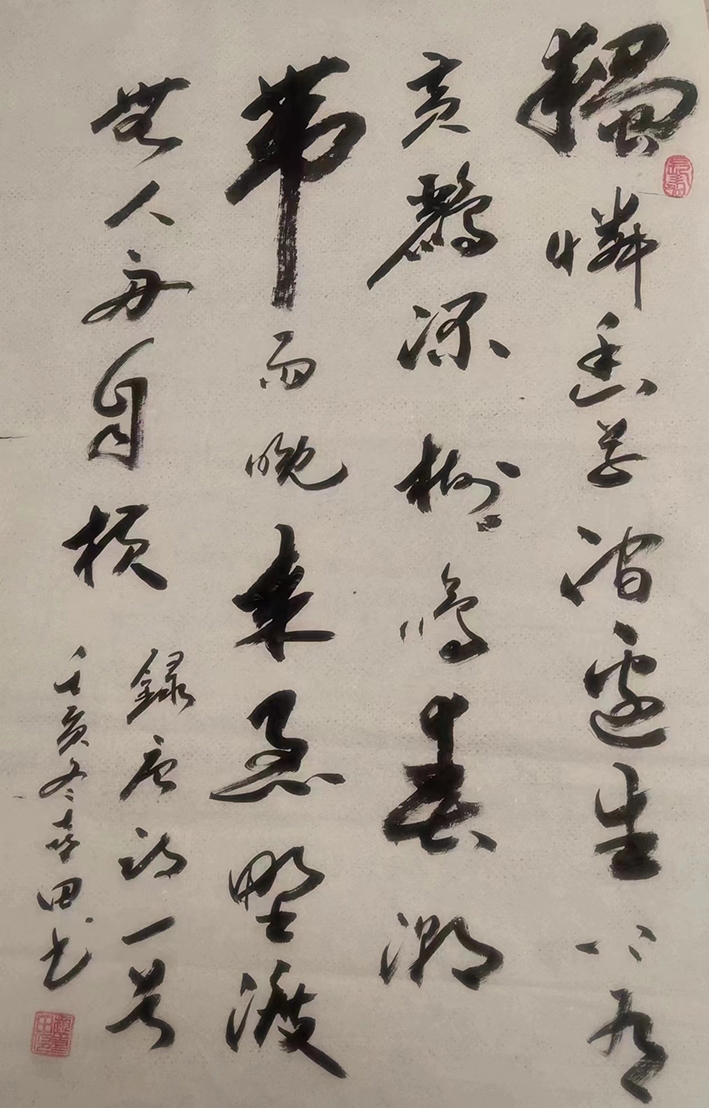 獨憐幽草澗邊生上有
黃鸝深樹鳴春潮
帶雨晚來急野渡
無人舟自橫
錄唐詩一首
壬寅冬喜田书